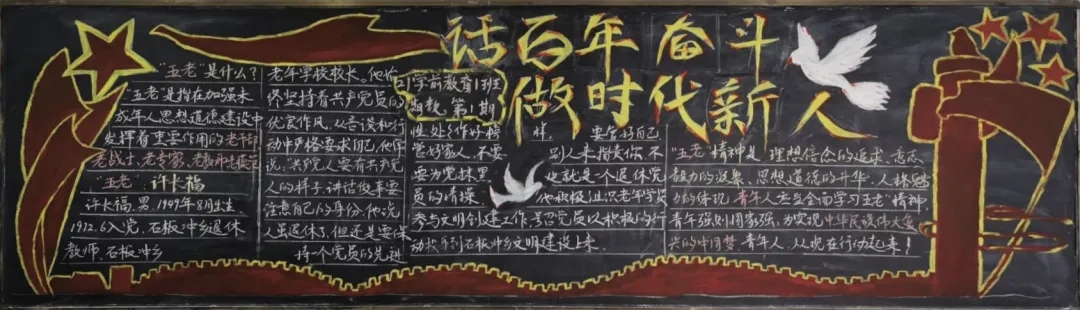 话百年奋斗
做时代新人
"五老"是什么?
"五老"是指在加强未
成年人思想道德建设中
发挥着重要作用的老干部
老战士、老专家、老教师、老模范
"五老"许长福
许长福,男,1949年8月出生,
1972.6入党,石板冲乡退休
教师,石板冲乡
老年学校校长。他始
终坚持着共产党员的
优良作风,从言谈和行
动中严格要求自己,他常
说:"共产党人要有共产党
人的样子,讲话做事要
注意自己的身份,他说
人虽退休了,但还是要保
持一个党员的先进
学前教育1班
第1期
性,处处作好榜样,要管好自己
管好家人,不要别人来指责你,不
要为党抹黑,也就是一个退休党
员的情操。他积极组织老年学员
参与文明创建工作,号召党员以积极的行
动投身到石板冲乡文明建设上来。
"五老"精神是理想信念的追求、意志
毅力的凝聚、思想道德的升华、人格魅
力的体现,青年人应当全面学习"五老"精神
青年强则国家强,为实现中华民族伟大复
兴的中国梦,青年人,从现在行动起来!